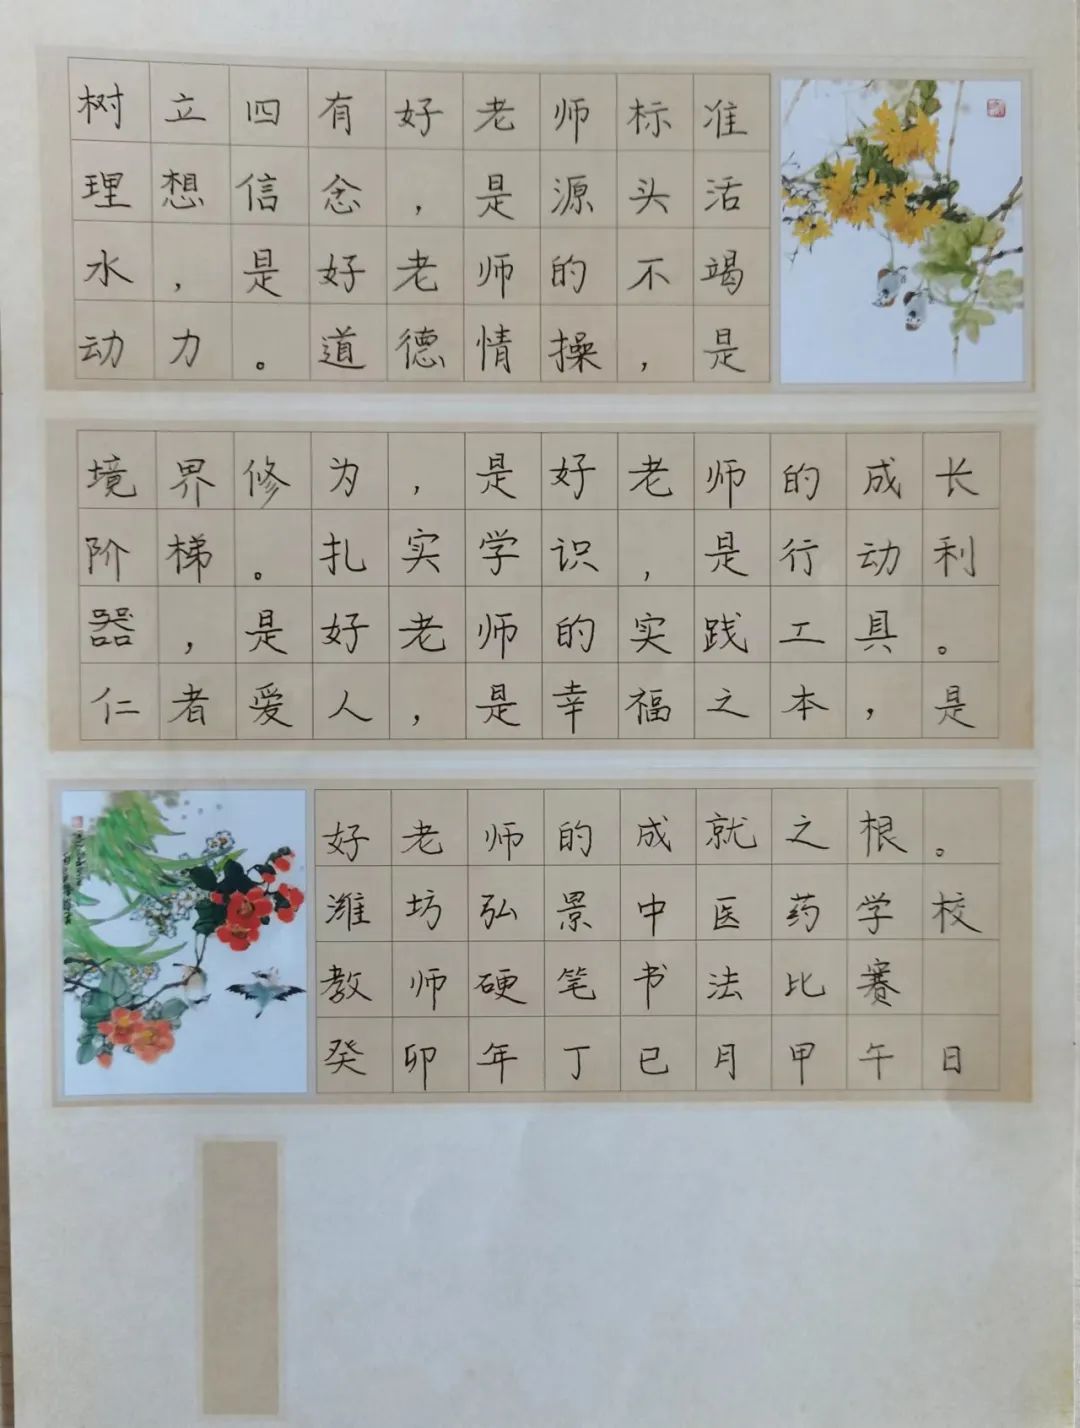 树立四有好老师标准
理想信念，是源头活
水，是好老师的不竭
动力。道德情操，是
境界修为，是好老师的成长
阶梯。扎实学识，是行动利
器，是好老师的实践工具。
仁者爱人，是幸福之本，是
好老师的成就之根。
潍坊弘景中医药学校
教师硬笔书法比赛
癸卯年丁巳月甲午日